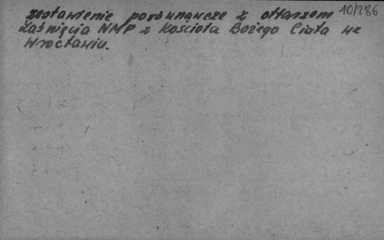 zestawienie porównawcze z ołtarzem 10/286
Zaśnięcia NMP z Kościoła Bożego Ciała we
Wrocławiu.